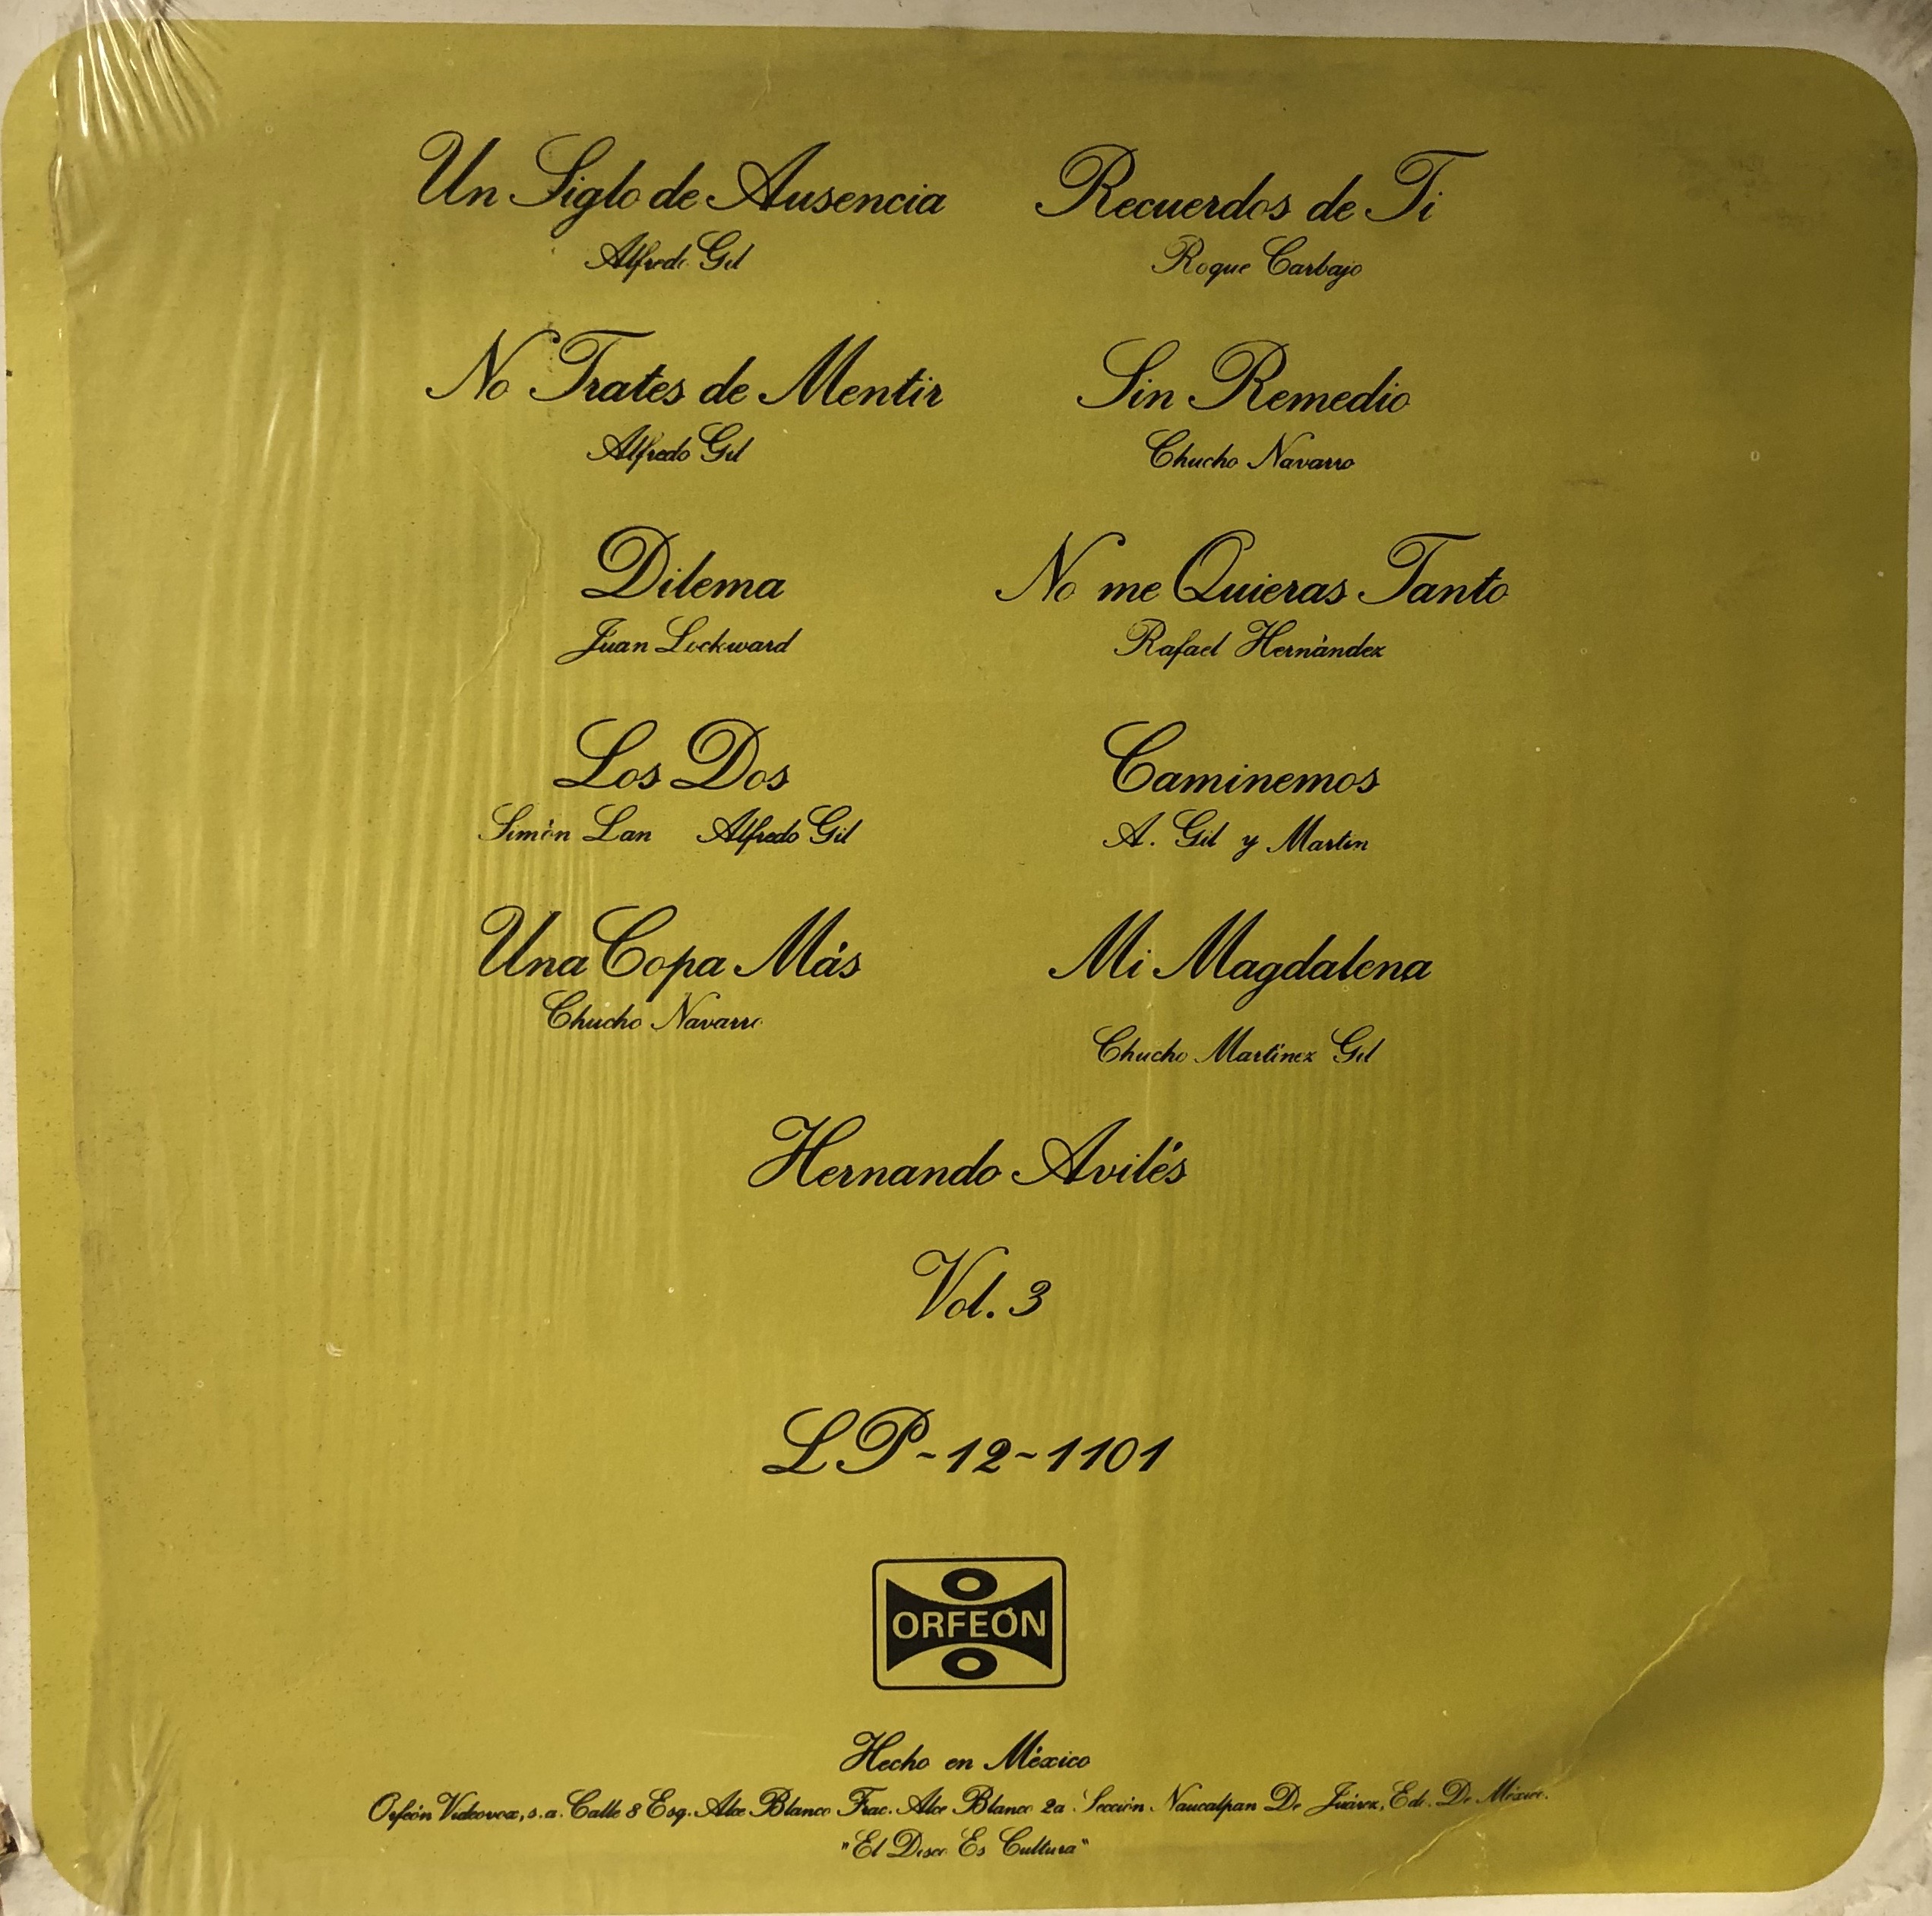 Un Siglo de Ausencia
Alfredo Gil
No Trates de Mentir
Alfredo Gil
Dilema
Juan Lockward
Los Dos
Simón Lan Alfredo Gil
Una Copa Más
Chucho Navarro
Recuerdos de Ti
Roque Carbajo
Sin Remedio
Chucho Navarro
No me Quieras Tanto
Rafael Hernández
Caminemos
A. Gil y Martín
Mi Magdalena
Chucho Martínez Gil
Hernando Avilés
Vol. 3
LP-12-1101
ORFEÓN
Hecho en México
Orfeón Videovox, s.a. Calle 8 Esq. Alce Blanco Frac. Alce Blanco 2a Sección Naucalpan De Juárez, Edo. De México.
"El Disco Es Cultura"